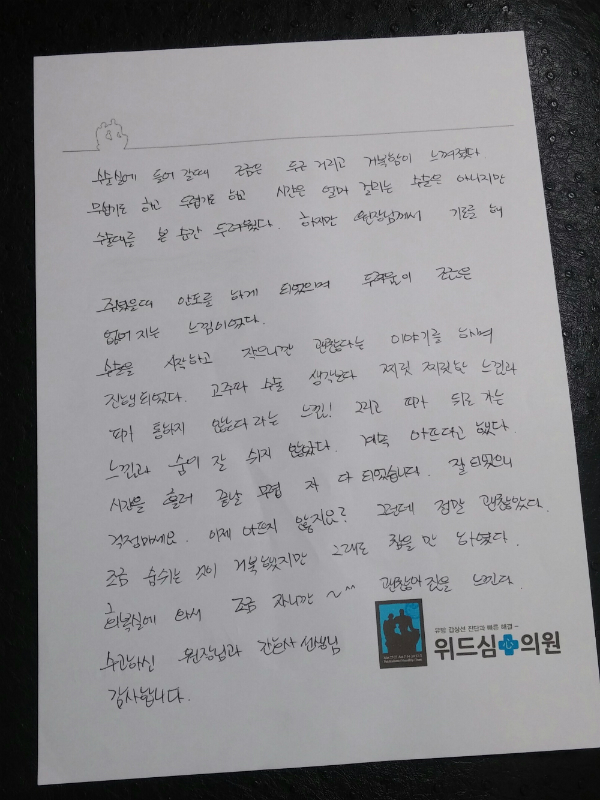 수술실에 들어 갈때 조금은 두근 거리고 거북함이 느껴졌다
무섭기도 하고 두렵기도 하고 시간은 얼마 걸리는 수술은 아니지만
수술대를 본 순간 두려웠다. 하지만 원장님께서 기도를 해
주셨을때 안도를 하게 되었으며 두려움이 조금은
없어 지는 느낌이였다.
수술을 시작하고 작으니깐 괜찮다는 이야기를 하며
진행되였다. 고주파 수술 생각보다 찌릿 찌릿한 느낌과
피가 통하지 않는다 라는 느낌! 그리고 피가 뒤로 가는
느낌과 숨이 잘 쉬지 않았다. 계속 아프다고 했다.
시간은 흘러 끝날 무렵 자 다 되었습니다. 잘 되었으니
걱정마세요. 이제 아프지 않지요? 그런데 정말 괜찮았다.
조금 숨쉬는 것이 거북했지만 그래도 참을 만 하였다.
회복실에 와서 조금 자니깐 ~^^ 괜찮아 짐을 느낀다.
수고하신 원장님과 간호사 선생님
감사합니다.
유방 갑상선 진단과 빠른 해결~
위드심의원